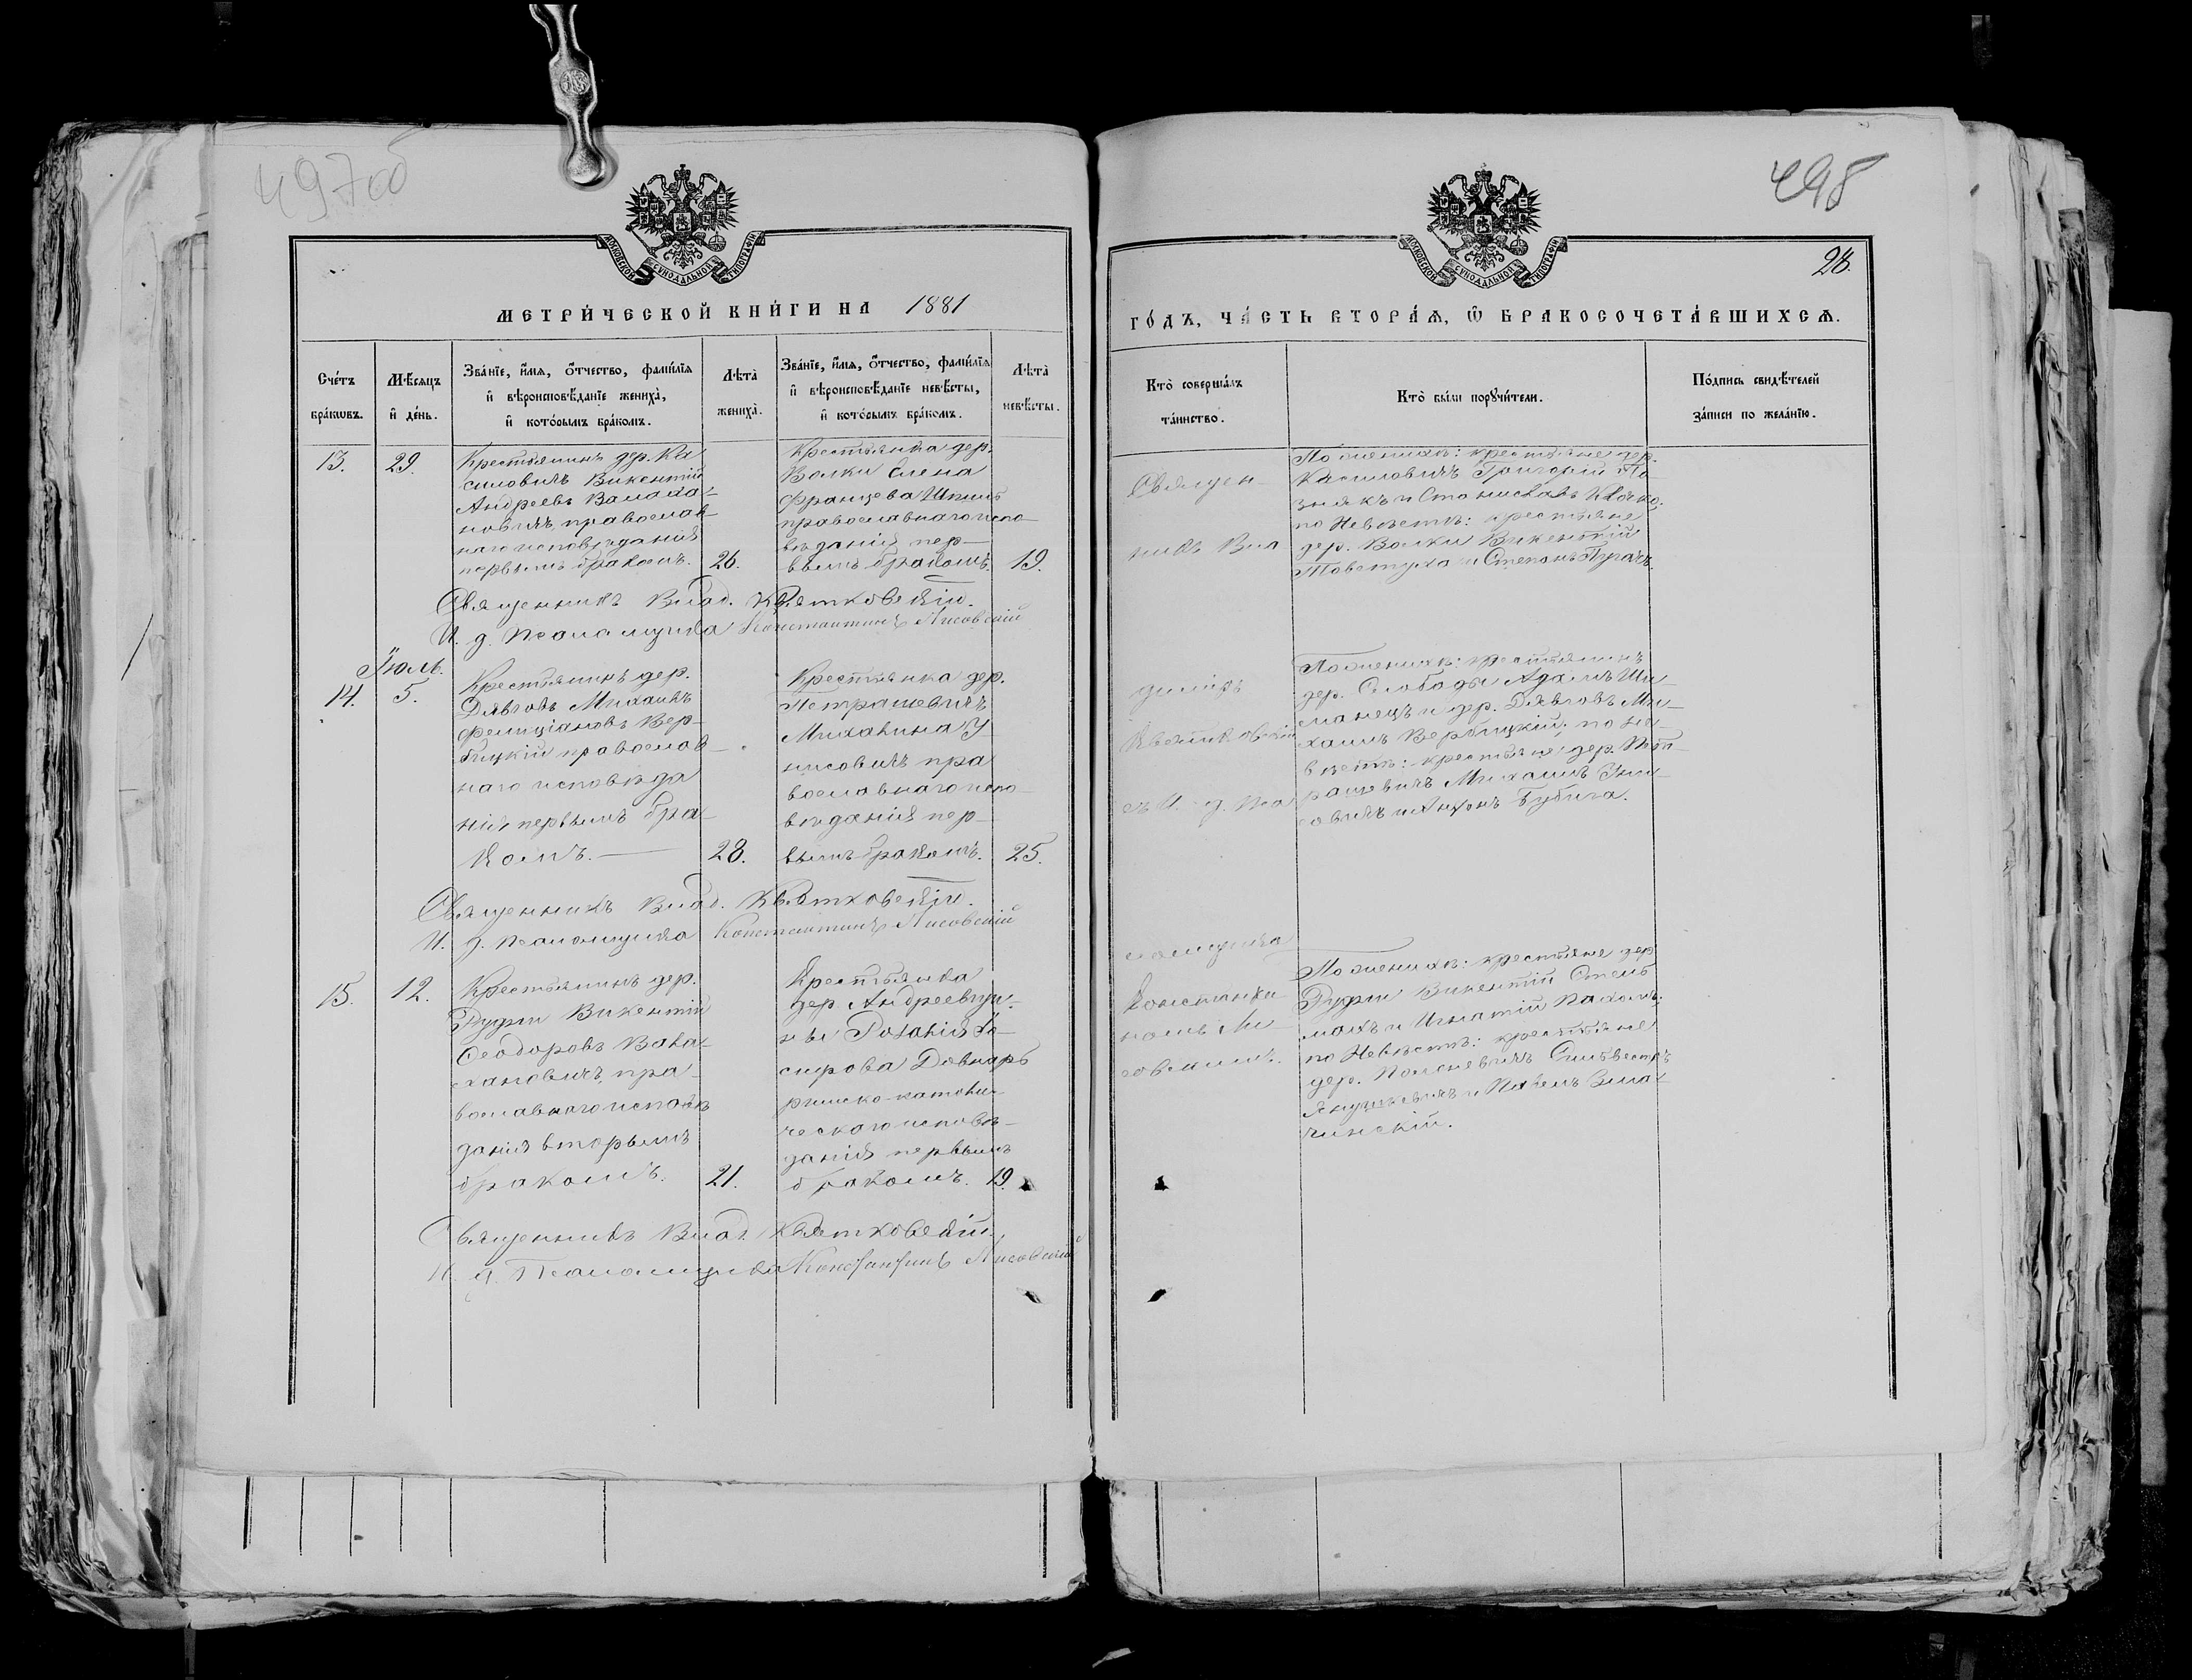 497об
498
МОСКОВСКОЙ СѴНОДАЛЬНОЙ ТИПОГРАФІИ
МОСКОВСКОЙ СѴНОДАЛЬНОЙ ТИПОГРАФІИ
28.
МЕТРИ́ЧЕСКОЙ КНИ́ГИ НА 1881
ГО́ДЪ, ЧА́СТЬ ВТОРА́Я, Ѿ БРАКОСОЧЕТА́ВШИХСЯ.
Сче́тъ
бра́кѡвъ.
Мѣ́сяцъ
и҆ де́нь.
Зва́нїе, и҆́мя, ѻ҆́тчество, фами́лїя
и҆ вѣроисповѣ́данїе жениха̀,
и҆ кото́рымъ бра́комъ.
Лѣта̀
жениха̀.
Зва́нїе, и҆́мя, ѻ҆́тчество, фами́лїя
и҆ вѣроисповѣ́данїе невѣ́сты,
и҆ кото́рымъ бра́комъ.
Лѣта̀
невѣ́сты.
Кто̀ соверша́лъ
та́инство.
Кто̀ бы́ли порꙋчи́тели.
По́дпись свидѣ́телей
за́писи по жела́нїю.
13.
29.
Крестьянинъ дер. Ка
силовичъ Викентій
Андреевъ Валаха-
новичъ, православ-
наго исповѣданія
первымъ бракомъ.
26.
Крестьянка дер.
Волки Елена
Францева Шпилъ
православнаго испо-
вѣданія пер-
вымъ бракомъ.
19.
Священ-
никъ Вла
По женихѣ: крестьяне дер.
Касиловичъ Григорій По-
знякъ и Станиславъ Клочко;
по невѣстѣ: крестьяне
дер. Волки Викентій
Товстуха и Степанъ Пугачъ.
Священникъ Влад. Квятковскій.
И. д. псаломщика Константинъ Лисовскій
Іюль.
14.
5.
Крестьянинъ дер.
Дявговъ Михаилъ
Фелиціановъ Вер-
бицкій православ-
наго исповѣда
нія первымъ бра-
комъ.
28.
Крестьянка дер.
Петрашевичъ
Михалина У
нисовичъ пра
вославнаго испо-
вѣданія пер-
вымъ бракомъ.
25.
диміръ
Квятковскій
съ И. д. пса
По женихѣ: крестьянинъ
дер. Слободы Адамъ Ши-
манецъ и дер. Дявговъ Ми-
хаилъ Вербицкій; по не-
вѣстѣ: крестьяне дер. Пет-
рашевичъ Михаилъ Уни-
совичъ и Антонъ Бубига.
Священникъ Влад. Квятковскій.
И. д. псаломщика Константинъ Лисовскій
15.
12.
Крестьянинъ дер.
Рудни Викентій
Ѳеодоровъ Вала-
хановичъ, пра-
вославнаго исповѣ
данія вторымъ
бракомъ.
21.
Крестьянка
дер Андреевщи-
ны Розалія Іо-
сифова Довнаръ
римско-католи-
ческаго исповѣ-
данія первымъ
бракомъ.
19.
ломщика
Константи
номъ Ли-
совскимъ.
По женихѣ: крестьяне дер
Рудни Викентій Стель
махъ и Игнатій Пахомъ;
по невѣстѣ: крестьяне
дер. Сильвестръ
Янушкевичъ и Павелъ
чинскій.
Священникъ Влад. Квятковскій.
И. д. Псаломщика Константинъ Лисовскій